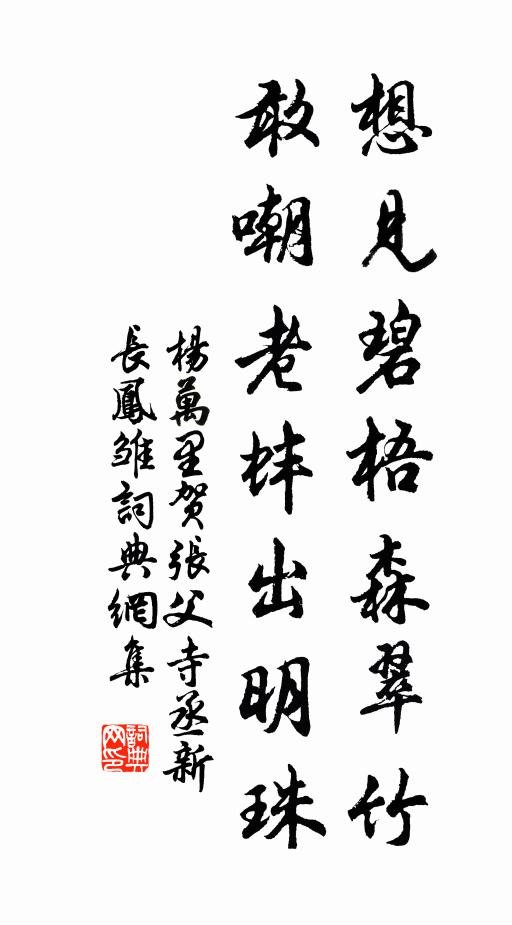 想見碧梧森翠竹
敢嘲老蚌出明珠
楊萬里賀張父寺丞新
長鳳雏詞典網集
詞典
网印